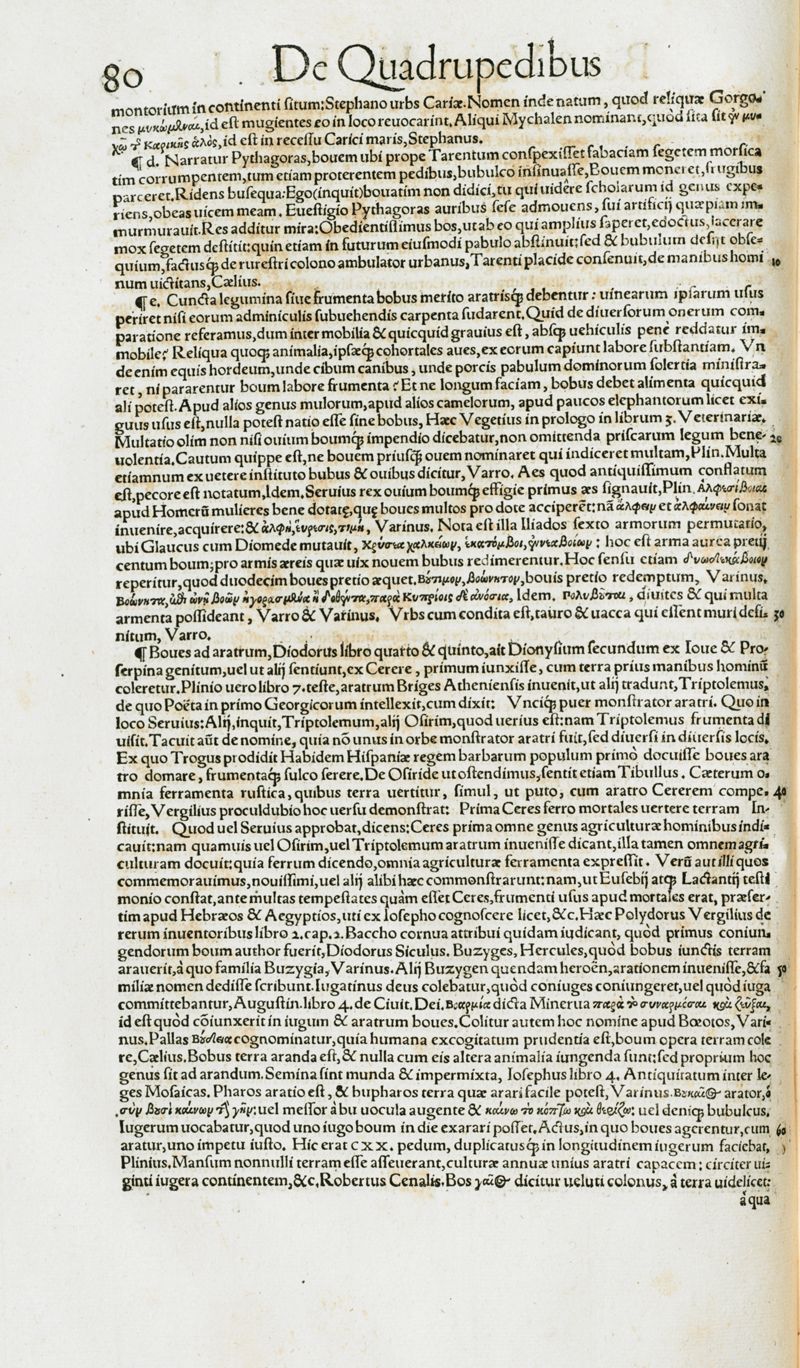 80 De Quadrupedibus
montorium in continenti ſitum: Stephano urbs Cariæ. Nomen inde natum, quod reliquæ Gorgo-
nes μυκώμεναι, id eſt mugientes eo in loco reuocarint. Aliqui Mychalen nominant, quòd ſita ſit ἐν μυ-
χῷ τ̃ Καρικῆς ἁλὸς, id eſt in receſſu Carici maris, Stephanus.
¶ d. Narratur Pythagoras, bouem ubi prope Tarentum conſpexiſſet fabaciam ſegetem morſica
tim corrumpentem, tum etiam proterentem pedibus, bubulco inſinuaſſe, Bouem moneret, frugibus
parceret. Ridens buſequa: Ego (inquit) bouatim non didici, tu qui uidere ſcholarum id genus expe-
riens, obeas uicem meam. Eueſtigio Pythagoras auribus ſeſe admouens, ſui artificij quæpiam im-
murmurauit. Res additur mira: Obedientiſſimus bos, ut ab eo qui amplius ſaperet, edoctus, lacerare
mox ſegetem deſtitit: quin etiam in futurum eiuſmodi pabulo abſtinuit: ſed & bubulum deſijt obſe-
quium, factusq́; de rureſtri colono ambulator urbanus, Tarenti placide conſenuit, de manibus homi 10
num uictitans, Cælius.
¶ e. Cuncta legumina ſiue frumenta bobus merito aratrisq́; debentur: uinearum ipſarum uſus
periret niſi eorum adminiculis ſubuehendis carpenta ſudarent. Quid de diuerſorum onerum com-
paratione referamus, dum inter mobilia & quicquid grauius eſt, abſq; uehiculis pene reddatur im-
mobile? Reliqua quoq; animalia, ipſæq́; cohortales aues, ex eorum capiunt labore ſubſtantiam. Vn
de enim equis hordeum, unde cibum canibus, unde porcis pabulum dominorum ſolertia miniſtra-
ret, ni pararentur boum labore frumenta? Et ne longum faciam, bobus debet alimenta quicquid
ali poteſt. Apud alios genus mulorum, apud alios camelorum, apud paucos elephantorum licet exi-
guus uſus eſt, nulla poteſt natio eſſe ſine bobus, Hæc Vegetius in prologo in librum 3. Veterinariæ.
Multatio olim non niſi ouium boumq́; impendio dicebatur, non omittenda priſcarum legum bene- 20
uolentia. Cautum quippe eſt, ne bouem priuſq; ouem nominaret qui indiceret multam, Plin. Multa
etiamnum ex uetere inſtituto bubus & ouibus dicitur, Varro. Aes quod antiquiſſimum conflatum
eſt, pecore eſt notatum, Idem. Seruius rex ouium boumq́; effigie primus æs ſignauit, Plin. Ἀλφεσίβοιαι
apud Homerũ mulieres bene dotatę, quę boues multos pro dote acciperēt: nã ἄλφειν et ἀλφαίνειν ſonat
inuenire, acquirere: & ἀλφὴ, εὕρεσις, τιμὴ, Varinus. Nota eſt illa Iliados ſexto armorum permutatio,
ubi Glaucus cum Diomede mutauit, Χρύσεα χαλκείων, ἑκατόμβοι, ἐννεαβοίων: hoc eſt arma aurea precij
centum boum, pro armis æreis quæ uix nouem bubus redimerentur. Hoc ſenſu etiam δυωδεκάβοιον
reperitur, quod duodecim boues pretio æquet. Βούτιμον, βοώνητον, bouis pretio redemptum, Varinus.
Βοώνητα, ἀπὸ ὠνῆ βοῶν ἠγορασμένα ἢ δοθέντα, παρὰ Κυπρίοις δὲ ἀνόσια, Idem. Πολυβοῦται, diuites & qui multa
armenta poſſideant, Varro & Varinus. Vrbs cum condita eſt, tauro & uacca qui eſſent muri defi- 30
nitum, Varro.
¶ Boues ad aratrum, Diodorus libro quarto & quinto, ait Dionyſium ſecundum ex Ioue & Pro-
ſerpina genitum, uel ut alij ſentiunt, ex Cerere, primum iunxiſſe, cum terra prius manibus hominũ
coleretur. Plinio uero libro 7. teſte, aratrum Briges Athenienſis inuenit, ut alij tradunt, Triptolemus,
de quo Poëta in primo Georgicorum intellexit, cum dixit: Vnciq́; puer monſtrator aratri. Quo in
loco Seruius: Alij, inquit, Triptolemum, alij Oſirim, quod uerius eſt: nam Triptolemus frumenta di
uiſit. Tacuit aũt de nomine, quia nõ unus in orbe monſtrator aratri fuit, ſed diuerſi in diuerſis locis.
Ex quo Trogus prodidit Habidem Hiſpaniæ regem barbarum populum primò docuiſſe boues ara
tro domare, frumentaq́; ſulco ſerere. De Oſiride ut oſtendimus, ſentit etiam Tibullus. Cæterum o-
mnia ferramenta ruſtica, quibus terra uertitur, ſimul, ut puto, cum aratro Cererem compe- 40
riſſe, Vergilius proculdubio hoc uerſu demonſtrat: Prima Ceres ferro mortales uertere terram In-
ſtituit. Quod uel Seruius approbat, dicens: Ceres prima omne genus agriculturæ hominibus indi-
cauit: nam quamuis uel Oſirim, uel Triptolemum aratrum inueniſſe dicant, illa tamen omnem agri-
culturam docuit: quia ferrum dicendo, omnia agriculturæ ferramenta expreſſit. Verũ aut illi quos
commemorauimus, nouiſſimi, uel alij alibi hæc commonſtrarunt: nam, ut Euſebij atq; Lactantij teſti
monio conſtat, ante multas tempeſtates quàm eſſet Ceres, frumenti uſus apud mortales erat, præſer-
tim apud Hebræos & Aegyptios, uti ex Ioſepho cognoſcere licet, &c. Hæc Polydorus Vergilius de
rerum inuentoribus libro 2. cap. 2. Baccho cornua attribui quidam iudicant, quòd primus coniun-
gendorum boum author fuerit, Diodorus Siculus. Buzyges, Hercules, quòd bobus iunctis terram
arauerit, à quo familia Buzygia, Varinus. Alij Buzygen quendam heroẽn, arationem inueniſſe, & fa 50
miliæ nomen dediſſe ſcribunt. Iugatinus deus colebatur, quòd coniuges coniungeret, uel quòd iuga
committebantur, Auguſtin. libro 4. de Ciuit. Dei. Βοαρμία dicta Minerua παρὰ τὸ συναρμόσαι καὶ ζεῦξαι,
id eſt quòd cõiunxerit in iugum & aratrum boues. Colitur autem hoc nomine apud Bœotos, Vari-
nus. Pallas Βούδεια cognominatur, quia humana excogitatum prudentia eſt, boum opera terram cole
re, Cælius. Bobus terra aranda eſt, & nulla cum eis altera animalia iungenda ſunt: ſed proprium hoc
genus ſit ad arandum. Semina ſint munda & impermixta, Ioſephus libro 4. Antiquitatum inter le-
ges Moſaicas. Pharos aratio eſt, & bupharos terra quæ arari facile poteſt, Varinus. Βουκαῖος arator, ὁ
σὺν βουσὶ καίνων τ̃ γῆν: uel meſſor à bu uocula augente & καίνω τὸ κόπτω καὶ θερίζω: uel deniq; bubulcus.
Iugerum uocabatur, quod uno iugo boum in die exarari poſſet. Actus, in quo boues agerentur, cum 60
aratur, uno impetu iuſto. Hic erat CXX. pedum, duplicatusq́; in longitudinem iugerum faciebat,
Plinius. Manſum nonnulli terram eſſe aſſeuerant, culturæ annuæ unius aratri capacem: circiter ui-
ginti iugera continentem, &c. Robertus Cenalis. Bos γαῖος dicitur ueluti colonus, à terra uidelicet:
à qua